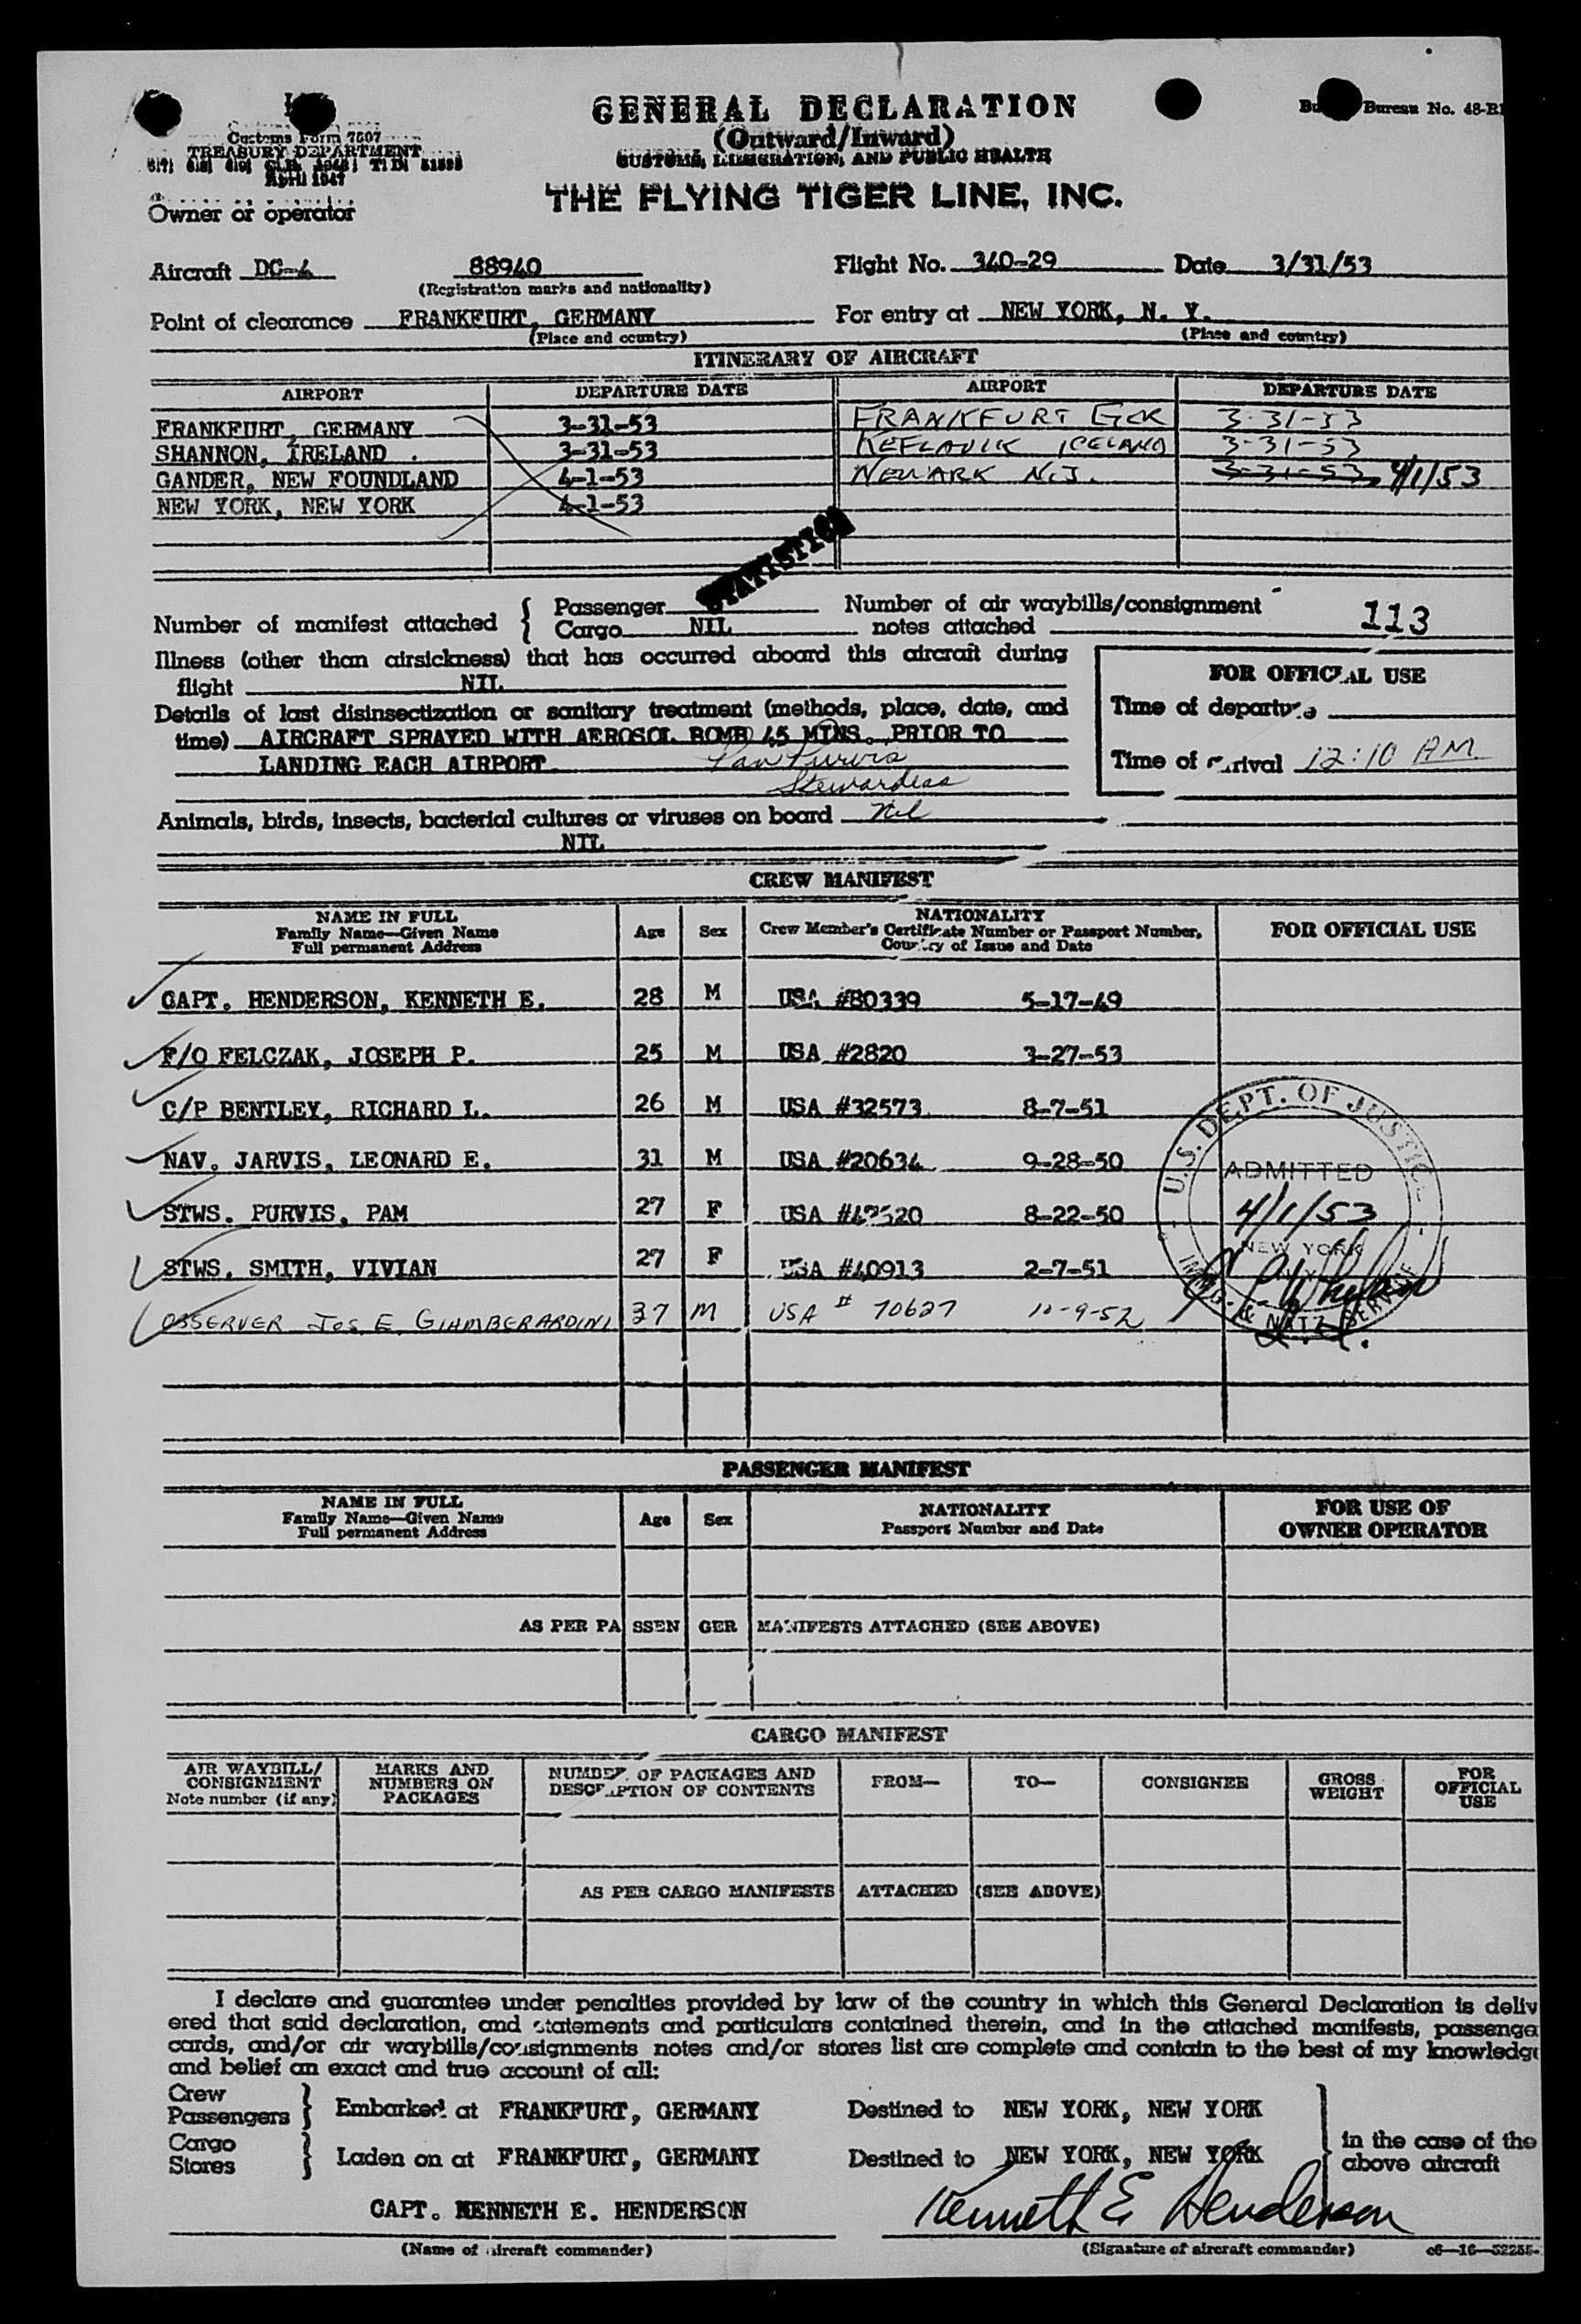 GENERAL DECLARATION
(Outward/Inward)
CUSTOMS, IMMIGRATION, AND PUBLIC HEALTH
Bureau No. 48-R
Customs Form 7507
TREASURY DEPARTMENT
April 1947
THE FLYING TIGER LINE, INC.
Owner or operator
Aircraft DC-4 88940 Flight No. 340-29 Date 3/31/53
(Registration marks and nationality)
Point of clearance FRANKFURT, GERMANY For entry at NEW YORK, N. Y.
(Place and country) (Place and country)
ITINERARY OF AIRCRAFT
AIRPORT DEPARTURE DATE AIRPORT DEPARTURE DATE
FRANKFURT, GERMANY 3-31-53 FRANKFURT 3-31-53
SHANNON, IRELAND 3-31-53 KEFLAVIK ICELAND 3-31-53
GANDER, NEW FOUNDLAND 4-1-53 NEWARK N.J. 3-31-53 4/1/53
NEW YORK, NEW YORK 4-1-53
STATISTICS
Number of manifest attached { Passenger Number of air waybills/consignment 113
Cargo NIL notes attached
Illness (other than airsickness) that has occurred aboard this aircraft during
flight NIL
FOR OFFICIAL USE
Details of last disinsectization or sanitary treatment (methods, place, date, and
Time of departure
time) AIRCRAFT SPRAYED WITH AEROSOL BOMB 45 MINS. PRIOR TO
LANDING EACH AIRPORT Pam Purvis
Time of arrival 12:10 AM.
Stewardess
Animals, birds, insects, bacterial cultures or viruses on board Nil
NIL
CREW MANIFEST
NAME IN FULL
Family Name—Given Name
Full permanent Address
Age Sex
NATIONALITY
Crew Member's Certificate Number or Passport Number,
Country of Issue and Date
FOR OFFICIAL USE
CAPT. HENDERSON, KENNETH E. 28 M USA #80339 5-17-49
F/O FELCZAK, JOSEPH P. 25 M USA #2820 3-27-53
C/P BENTLEY, RICHARD L. 26 M USA #32573 8-7-51
NAV. JARVIS, LEONARD E. 31 M USA #20634 9-28-50
STWS. PURVIS, PAM 27 F USA 8-22-50
STWS. SMITH, VIVIAN 27 F USA #40913 2-7-51
OBSERVER JOS E. GIAMBERARDINI 37 M USA # 70627 10-9-52
U.S. DEPT. OF JUSTICE
ADMITTED
4/1/53
NEW YORK
N.Y.
IMMG. & NATZ. SERVICE
PASSENGER MANIFEST
NAME IN FULL
Family Name—Given Name
Full permanent Address
Age Sex
NATIONALITY
Passport Number and Date
FOR USE OF
OWNER OPERATOR
AS PER PASSENGER MANIFESTS ATTACHED (SEE ABOVE)
CARGO MANIFEST
AIR WAYBILL/
CONSIGNMENT
Note number (if any)
MARKS AND
NUMBERS ON
PACKAGES
NUMBER OF PACKAGES AND
DESCRIPTION OF CONTENTS
FROM— TO— CONSIGNEE
GROSS
WEIGHT
FOR
OFFICIAL
USE
AS PER CARGO MANIFESTS ATTACHED (SEE ABOVE)
I declare and guarantee under penalties provided by law of the country in which this General Declaration is deliv
ered that said declaration, and statements and particulars contained therein, and in the attached manifests, passenge
cards, and/or air waybills/consignments notes and/or stores list are complete and contain to the best of my knowledge
and belief an exact and true account of all:
Crew
Passengers } Embarked at FRANKFURT, GERMANY Destined to NEW YORK, NEW YORK
Cargo
Stores } Laden on at FRANKFURT, GERMANY Destined to NEW YORK, NEW YORK
in the case of the
above aircraft
CAPT. KENNETH E. HENDERSON Kenneth E Henderson
(Name of aircraft commander) (Signature of aircraft commander) c6—16—52255-